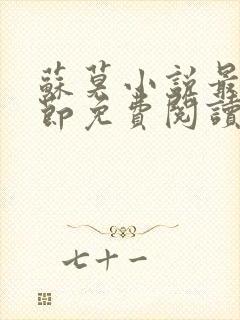 蘇莫小說最
節免費閱讀
七十一